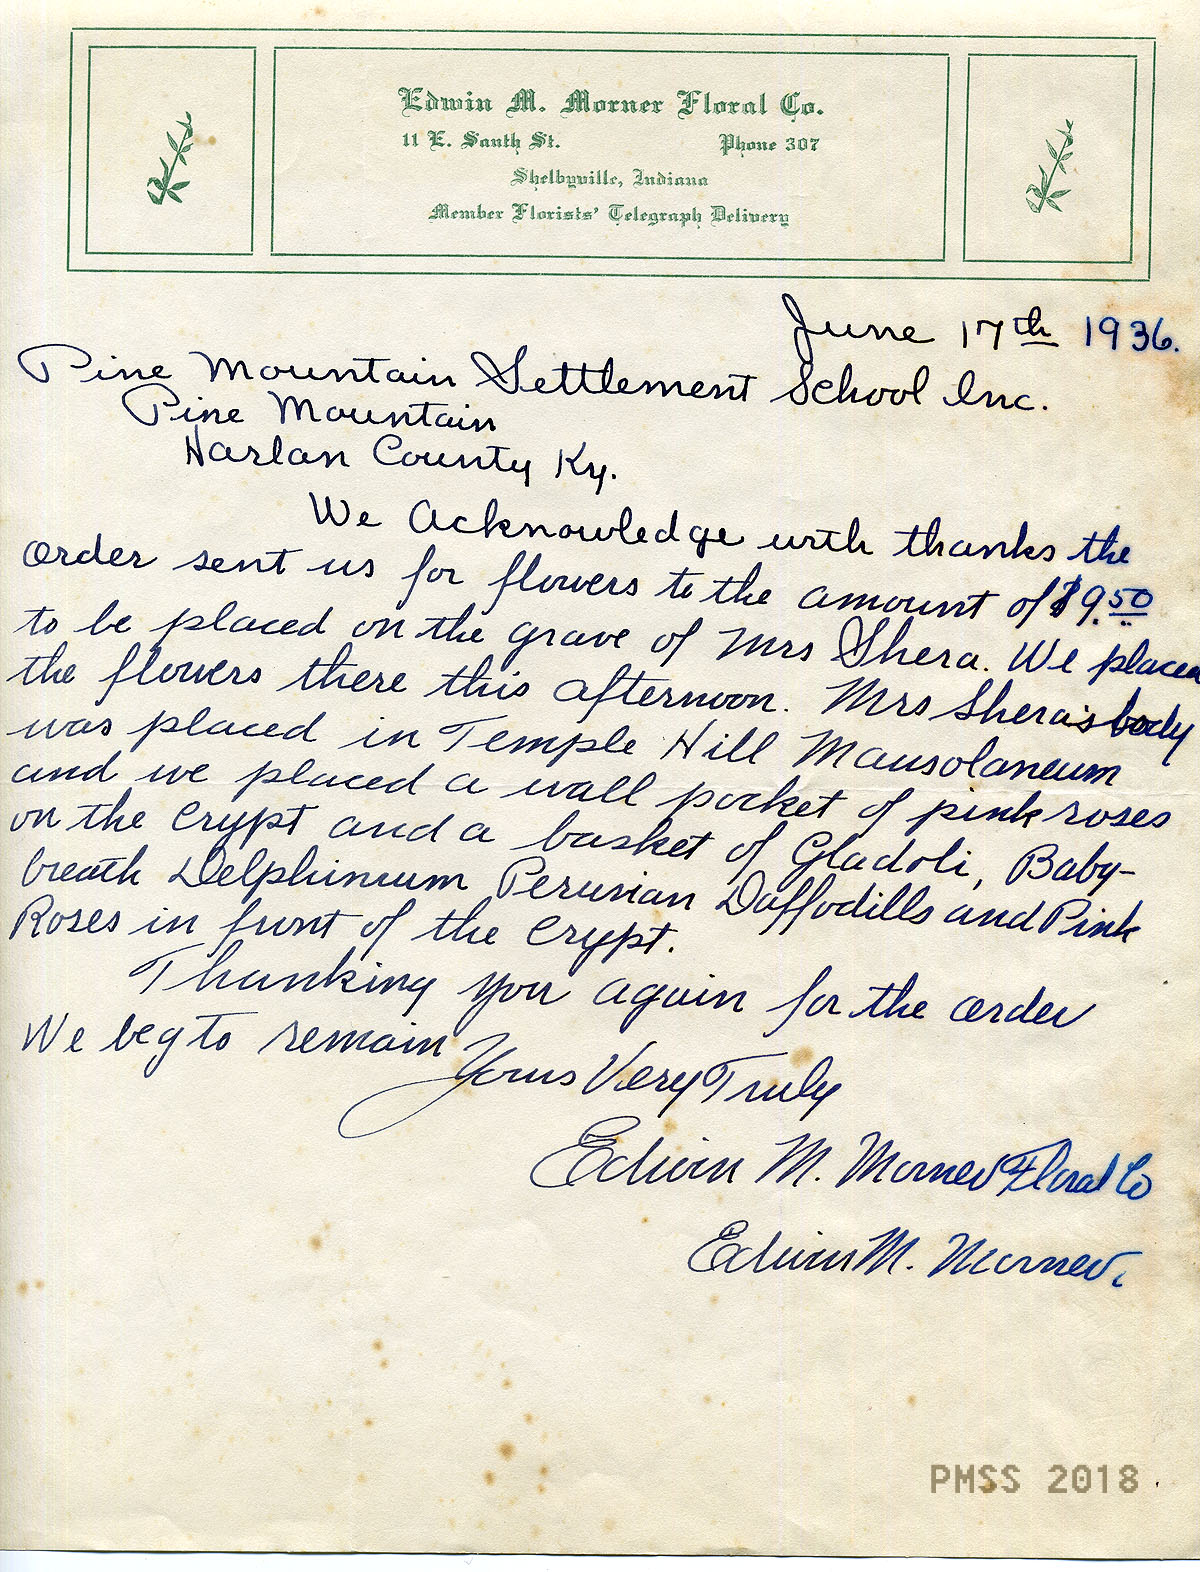 Edwin M. Morner Floral Co.
11 E. South St. Phone 307
Shelbyville, Indiana
Member Florists' Telegraph Delivery
June 17th 1936.
Pine Mountain Settlement School Inc.
Pine Mountain
Harlan County Ky.
We Acknowledge with thanks the
order sent us for flowers to the amount of $9.50
to be placed on the grave of Mrs Shera. We placed
the flowers there this afternoon. Mrs Shera's body
was placed in Temple Hill Mausolaneum
and we placed a wall pocket of pink roses
on the Crypt and a basket of Gladoli, Baby-
breath Delphineum Peruvian Daffodills and Pink
Roses in front of the Crypt.
Thanking you again for the order
We beg to remain
Yours Very Truly
Edwin M. Morner Floral Co
Edwin M. Morner.
PMSS 2018